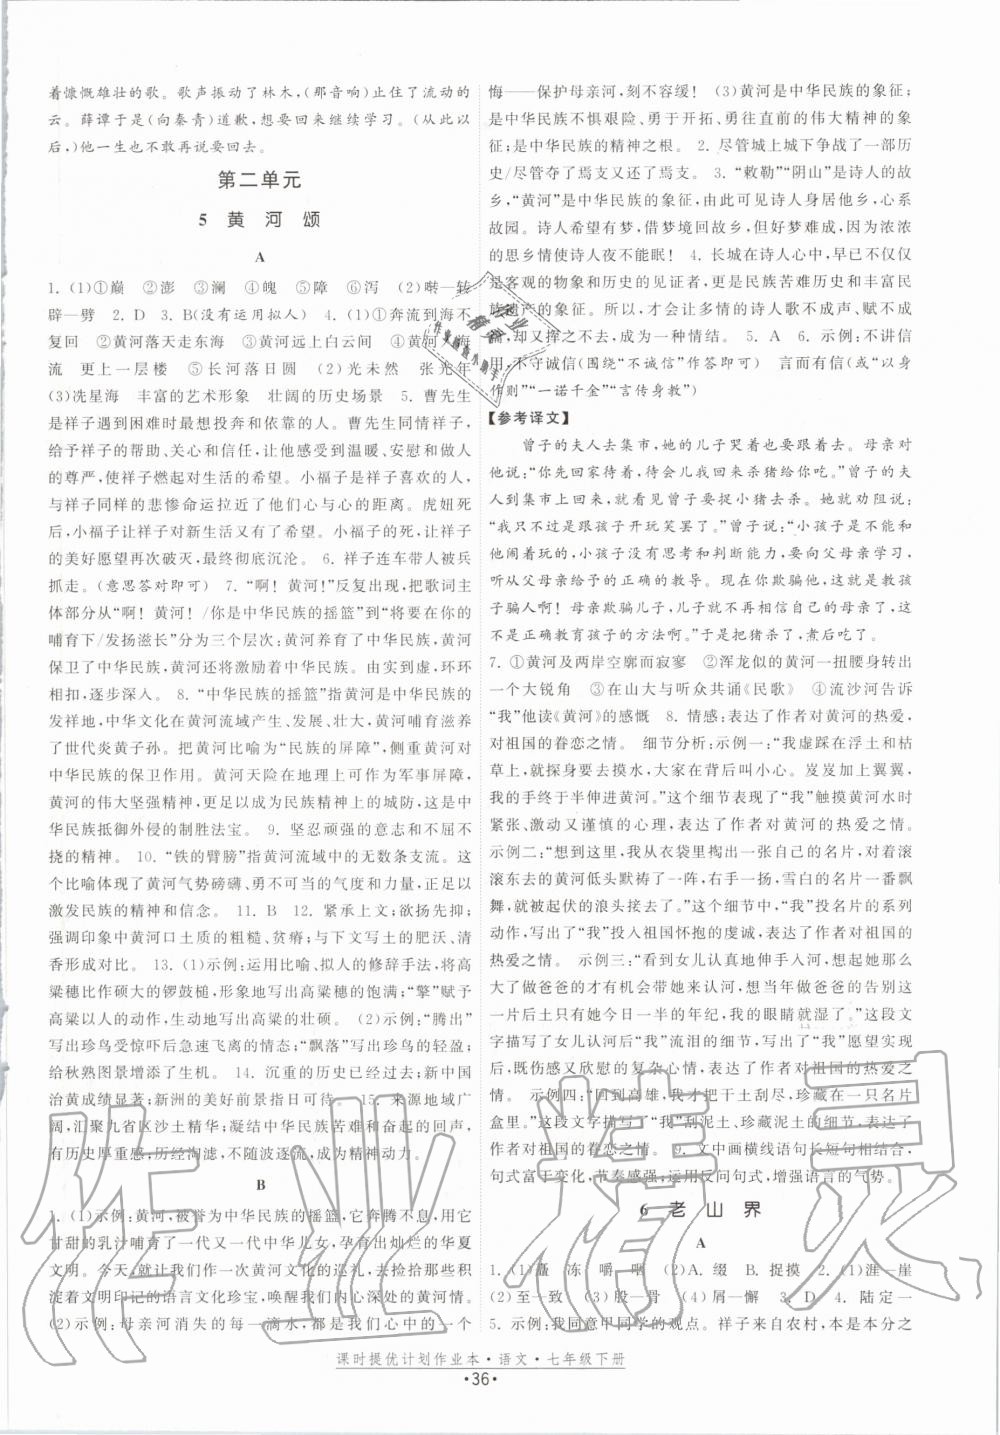 着慷慨雄壮的歌。歌声振动了林木,(那音响)止住了流动的
云。薛谭于是(向秦青)道歉,想要回来继续学习。(从此以
后,)他一生也不敢再说要回去。
第二单元
5 黄河颂
A
1. (1)①巅 ②澎 ③澜 ④魄 ⑤障 ⑥泻 (2)啭—转
辟—劈 2. D 3. B(没有运用拟人) 4. (1)①奔流到海不
复回 ②黄河落天走东海 ③黄河远上白云间 ④黄河入海
流 更上一层楼 ⑤长河落日圆 (2)光未然 张光年
(3)冼星海 丰富的艺术形象 壮阔的历史场景 5. 曹先生
是祥子遇到困难时最想投奔和依靠的人。曹先生同情祥子,
给祥子的帮助、关心和信任,让祥子感受到温暖、安慰和做人
的尊严,使祥子燃起对生活的希望。小福子是祥子喜欢的人,
与祥子同样的悲惨命运拉近了他们心与心的距离。虎妞死
后,小福子让祥子对新生活又有了希望。小福子的死,让祥子
的美好愿望再次破灭,最终彻底沉沦。 6. 祥子连车带人被兵
抓走。(意思答对即可) 7. “啊！黄河！”反复出现,把歌词主
体部分从“啊！黄河！/你是中华民族的摇篮”到“将要在你的
哺育下/发扬滋长”分为三个层次:黄河养育了中华民族,黄河
保卫了中华民族,黄河还将激励着中华民族。由实到虚,环环
相扣,逐步深入。 8. “中华民族的摇篮”指黄河是中华民族的
发祥地,中华文化在黄河流域产生、发展、壮大,黄河哺育滋养
了世代炎黄子孙。把黄河比喻为“民族的屏障”,侧重黄河对
中华民族的保卫作用。黄河天险在地理上可以作军事屏障,
黄河的伟大坚强精神,更足以成为民族精神上的城防,这是中
华民族抵御外侵的制胜法宝。 9. 坚忍顽强的意志和不屈不
挠的精神。 10. “铁的臂膀”指黄河流域中的无数条支流。这
个比喻体现了黄河气势磅礴、勇不可当的气度和力量,足以
激发民族的精神和信念。 11. B 12. 紧承上文;欲扬先抑;
强调印象中黄河口土质的粗糙、贫瘠;与下文写土的肥沃、清
香形成对比。 13. (1)示例:运用比喻、拟人的修辞手法,将高
粱穗比作硕大的锣鼓槌,形象地写出高粱穗的饱满;“擎”赋予
高粱以人的动作,生动地写出高粱的茁壮。 (2)示例:“腾出”
写出珍鸟受惊吓后急速飞离的情态;“飘落”写出珍鸟的轻盈;
给秋熟图景增添了生机。 14. 沉重的历史已经过去;新中国
治黄成绩显著;新洲的美好前景指日可待。 15. 来源地域广
阔,汇聚九省区沙土精华;凝结中华民族苦难和奋起的回声,
有历史厚重感;历经淘滤,不随波逐流,成为精神动力。
B
1. (1)示例:黄河,被誉为中华民族的摇篮,它奔腾不息,用它
甘甜的乳汁哺育了一代又一代中华儿女,孕育出灿烂的华夏
文明。今天,就让我们作一次黄河文化的巡礼,去捡拾那些积
淀着文明印记的语言文化珍宝,唤醒我们内心深处的黄河情。
(2)示例:母亲河消失的每一滴水,都是我们心中的一个
悔——保护母亲河,刻不容缓！ (3)黄河是中华民族的象征;
是中华民族不惧艰险、勇于开拓、勇往直前的伟大精神的象
征;是中华民族的精神之根。 2. 尽管城上城下争战了一部历
史/尽管夺了焉支又还了焉支。 3. “敕勒”“阴山”是诗人的故
乡,“黄河”是中华民族的象征,由此可见诗人身居他乡,心系
故园。诗人希望有梦,借梦境回故乡,但好梦难成,因为浓浓
的思乡情使诗人夜不能眠！ 4. 长城在诗人心中,早已不仅仅
是客观的物象和历史的见证者,更是民族苦难历史和丰富民
族遗产的象征。所以,才会让多情的诗人歌不成声、赋不成
篇,却又一挥而就,成为一种情结。 5. A 6. 示例:不讲信
用,不守诚信(围绕“不诚信”作答即可) 言而有信(或“以身
作则”“一诺千金”“言传身教”)
【参考译文】
曾子的夫人去集市,她的儿子哭着也要跟着去。母亲对
他说:“你先回家待着,待会儿我回来杀猪给你吃。”曾子的夫
人到集市上回来,就看见曾子要捉小猪去杀。她就劝阻说:
“我只不过是跟孩子开玩笑罢了。”曾子说:“小孩子是不能和
他闹着玩的,小孩子没有思考和判断能力,要向父母亲学习,
听从父母亲给予的正确的教导。现在你欺骗他,这就是教孩
子骗人啊！母亲欺骗儿子,儿子就不再相信自己的母亲了,这
不是正确教育孩子的方法啊。”于是把猪杀了,煮后吃了。
7. ①黄河及两岸空廓而寂寥 ②浑龙似的黄河一扭腰身转出
一个大锐角 ③在山大与听众共诵《民歌》 ④流沙河告诉
“我”他读《黄河》的感慨 8. 情感:表达了作者对黄河的热爱,
对祖国的眷恋之情。 细节分析:示例一:“我虚踩在浮土和枯
草上,就探身要去摸水,大家在背后叫小心。岌岌加上翼翼,
我的手终于半伸进黄河。”这个细节表现了“我”触摸黄河水时
紧张、激动又谨慎的心理,表达了作者对黄河的热爱之情。
示例二:“想到这里,我从衣袋里掏出一张自己的名片,对着滚
滚东去的黄河低头默祷了一阵,右手一扬,雪白的名片一番飘
舞,就被起伏的浪头接去了。”这个细节中,“我”投名片的系列
动作,写出了“我”投入祖国怀抱的虔诚,表达了作者对祖国的
热爱之情。 示例三:“看到女儿认真地伸手入河,想起她那么
大了做爸爸的才有机会带她来认河,想当年做爸爸的告别这
一片后土只有她今日一半的年纪,我的眼睛就湿了。”这段文
字描写了女儿认河后“我”流泪的细节,写出了“我”愿望实现
后,既伤感又欣慰的复杂心情,表达了作者对祖国的热爱之
情。 示例四:“回到高雄,我才把干土刮尽,珍藏在一只名片
盒里。”这段文字描写了“我”刮泥土、珍藏泥土的细节,表达了
作者对祖国的眷恋之情。 9. 文中画横线语句长短句相结合,
句式富于变化,节奏感强;运用反问句式,增强语言的气势。
6 老山界
A
1. (1)矗 冻 嚼 咽 (2)A. 缀 B. 捉摸 2. (1)涯—崖
(2)至—致 (3)股—骨 (4)屑—懈 3. D 4. 陆定一
5. 示例:我同意甲同学的观点。祥子来自农村,本本分分
课时提优计划作业本·语文·七年级下册
·36·
作业精灵